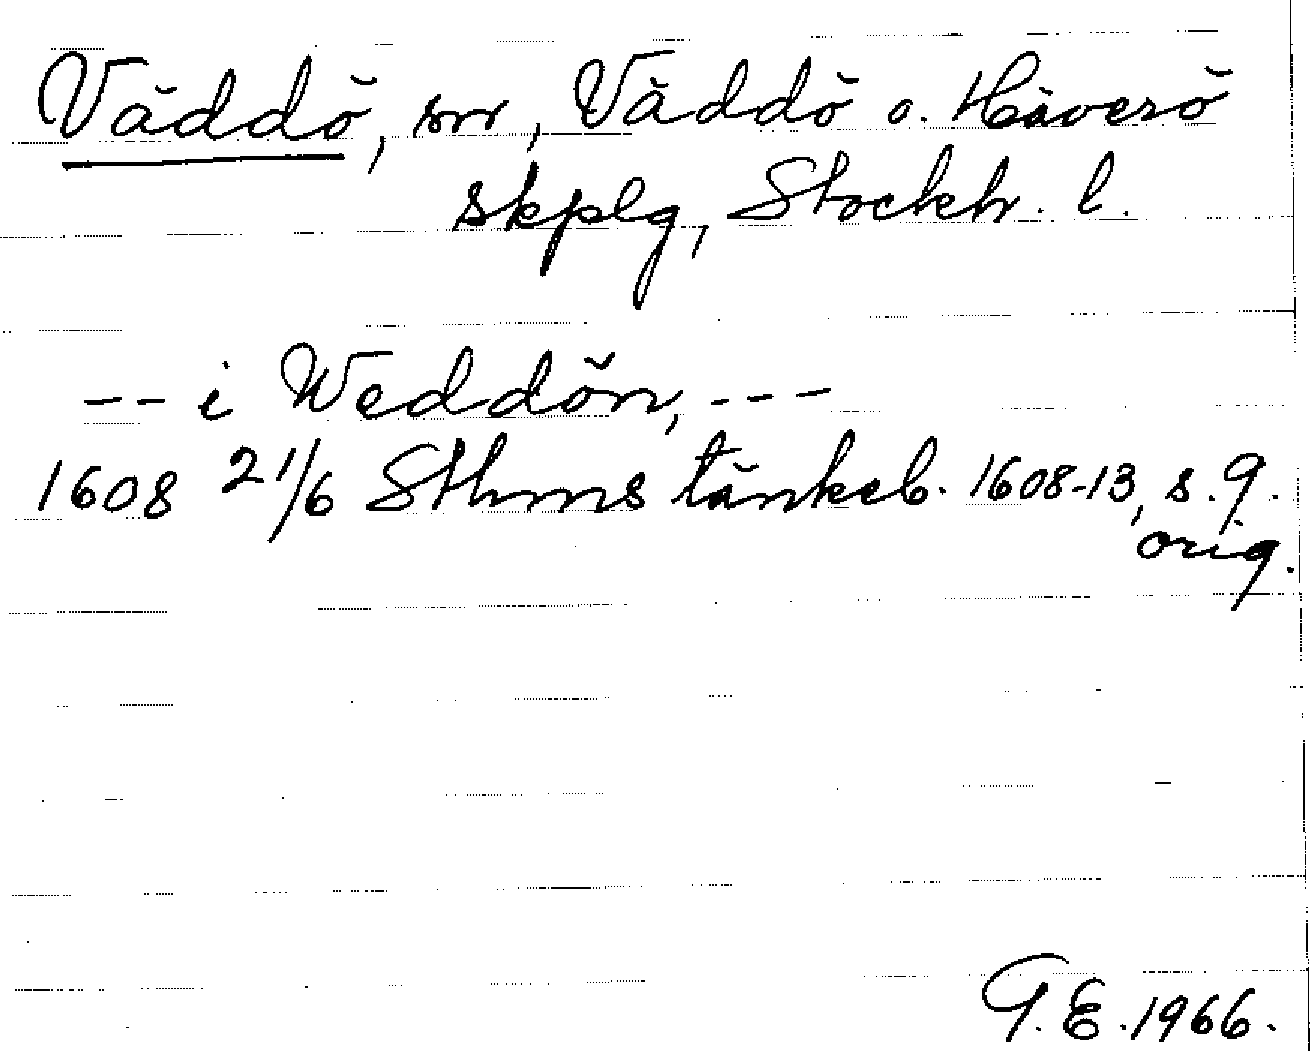 Väddö, sn, Väddö o. Häverö
skplg, Stockh. l.
-- i Weddön, ---
1608 21/6 Sthms tänkeb. 1608-13, s. 9.
orig.
G. E. 1966.